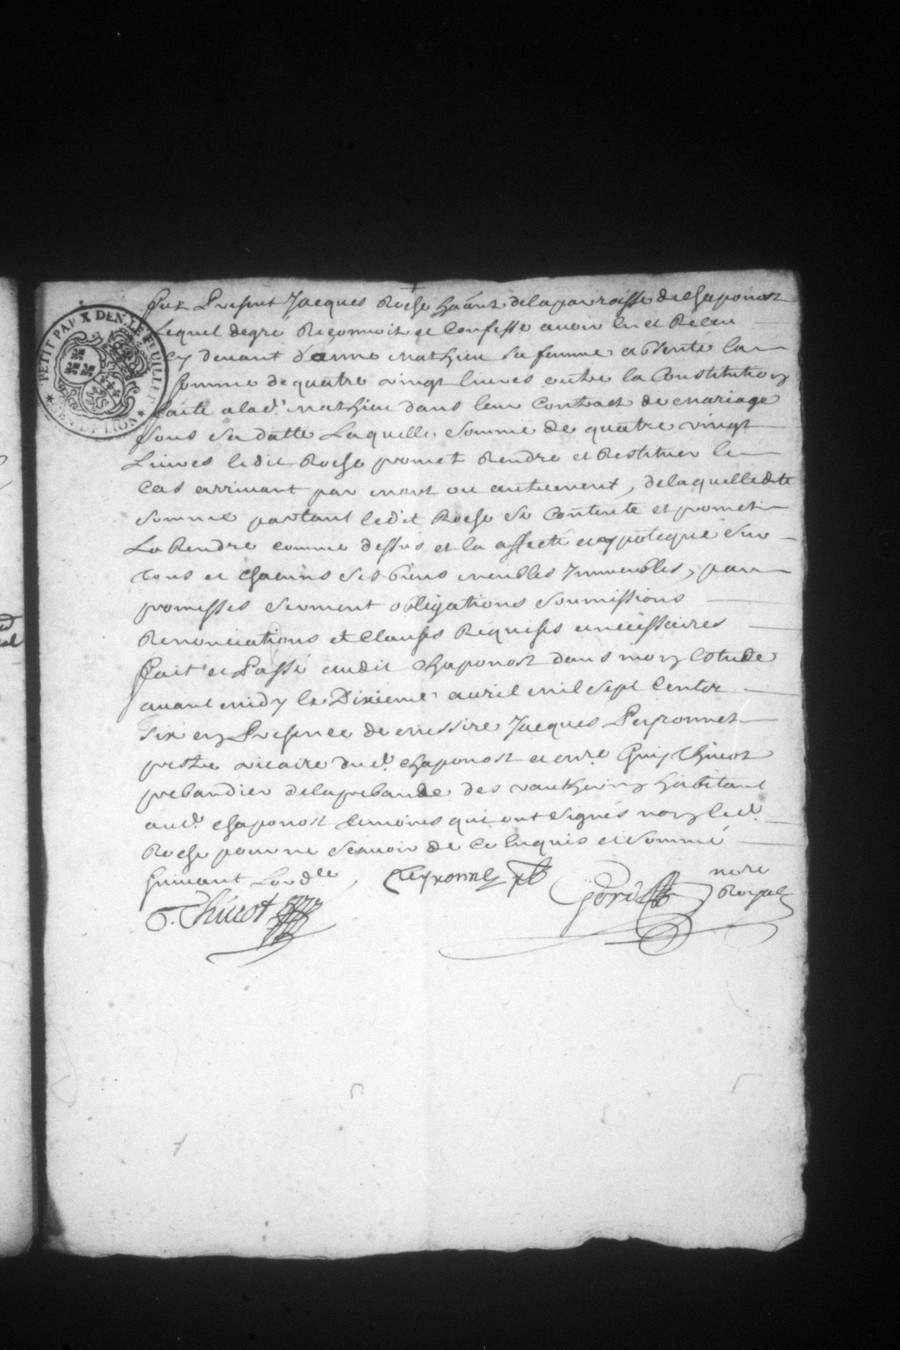 PETIT PAP X DEN. LE FEUILLE
GEN DE LION
Fut Present Jacques Roche hãnt de la parroisse de Chaponost
Lequel de gre Reconnoit et Confesse avoir eu et Receu
Cy devant d'anne Mathieu sa femme absente la
somme de quatre vingt livres outre la Constitution
faite a lad.^e Mathieu dans leur Contract de mariage
sous sa datte Laquelle somme de quatre vingt
Livres ledit Roche promet Rendre et Restituer le
Cas arrivant par mort ou autrement, de laquelle dte
somme partant ledit Roche se Contente et promet
La Rendre comme dessus et la affecte et ypoteque sur
tous et chacuns ses biens meubles Immeubles, par
promesses serment obligations soumissions
Renonciations et Clauses Requises et necessaires
Fait et Passé audit Chaponost dans mon Estude
avant midy le Dixieme avril mil sept Cents
six en Presence de messire Jacques Peyronnet
prestre vicaire dud. Chaponost et m.re Guy Thivot
prebandier de la prebande des habitant
aud. Chaponost temoins qui ont signés non led.
Roche pour ne scavoir de Ce Enquis et sommé
suivant Lord.ce
Peyronnet
no.re
Royal
G. Thivot